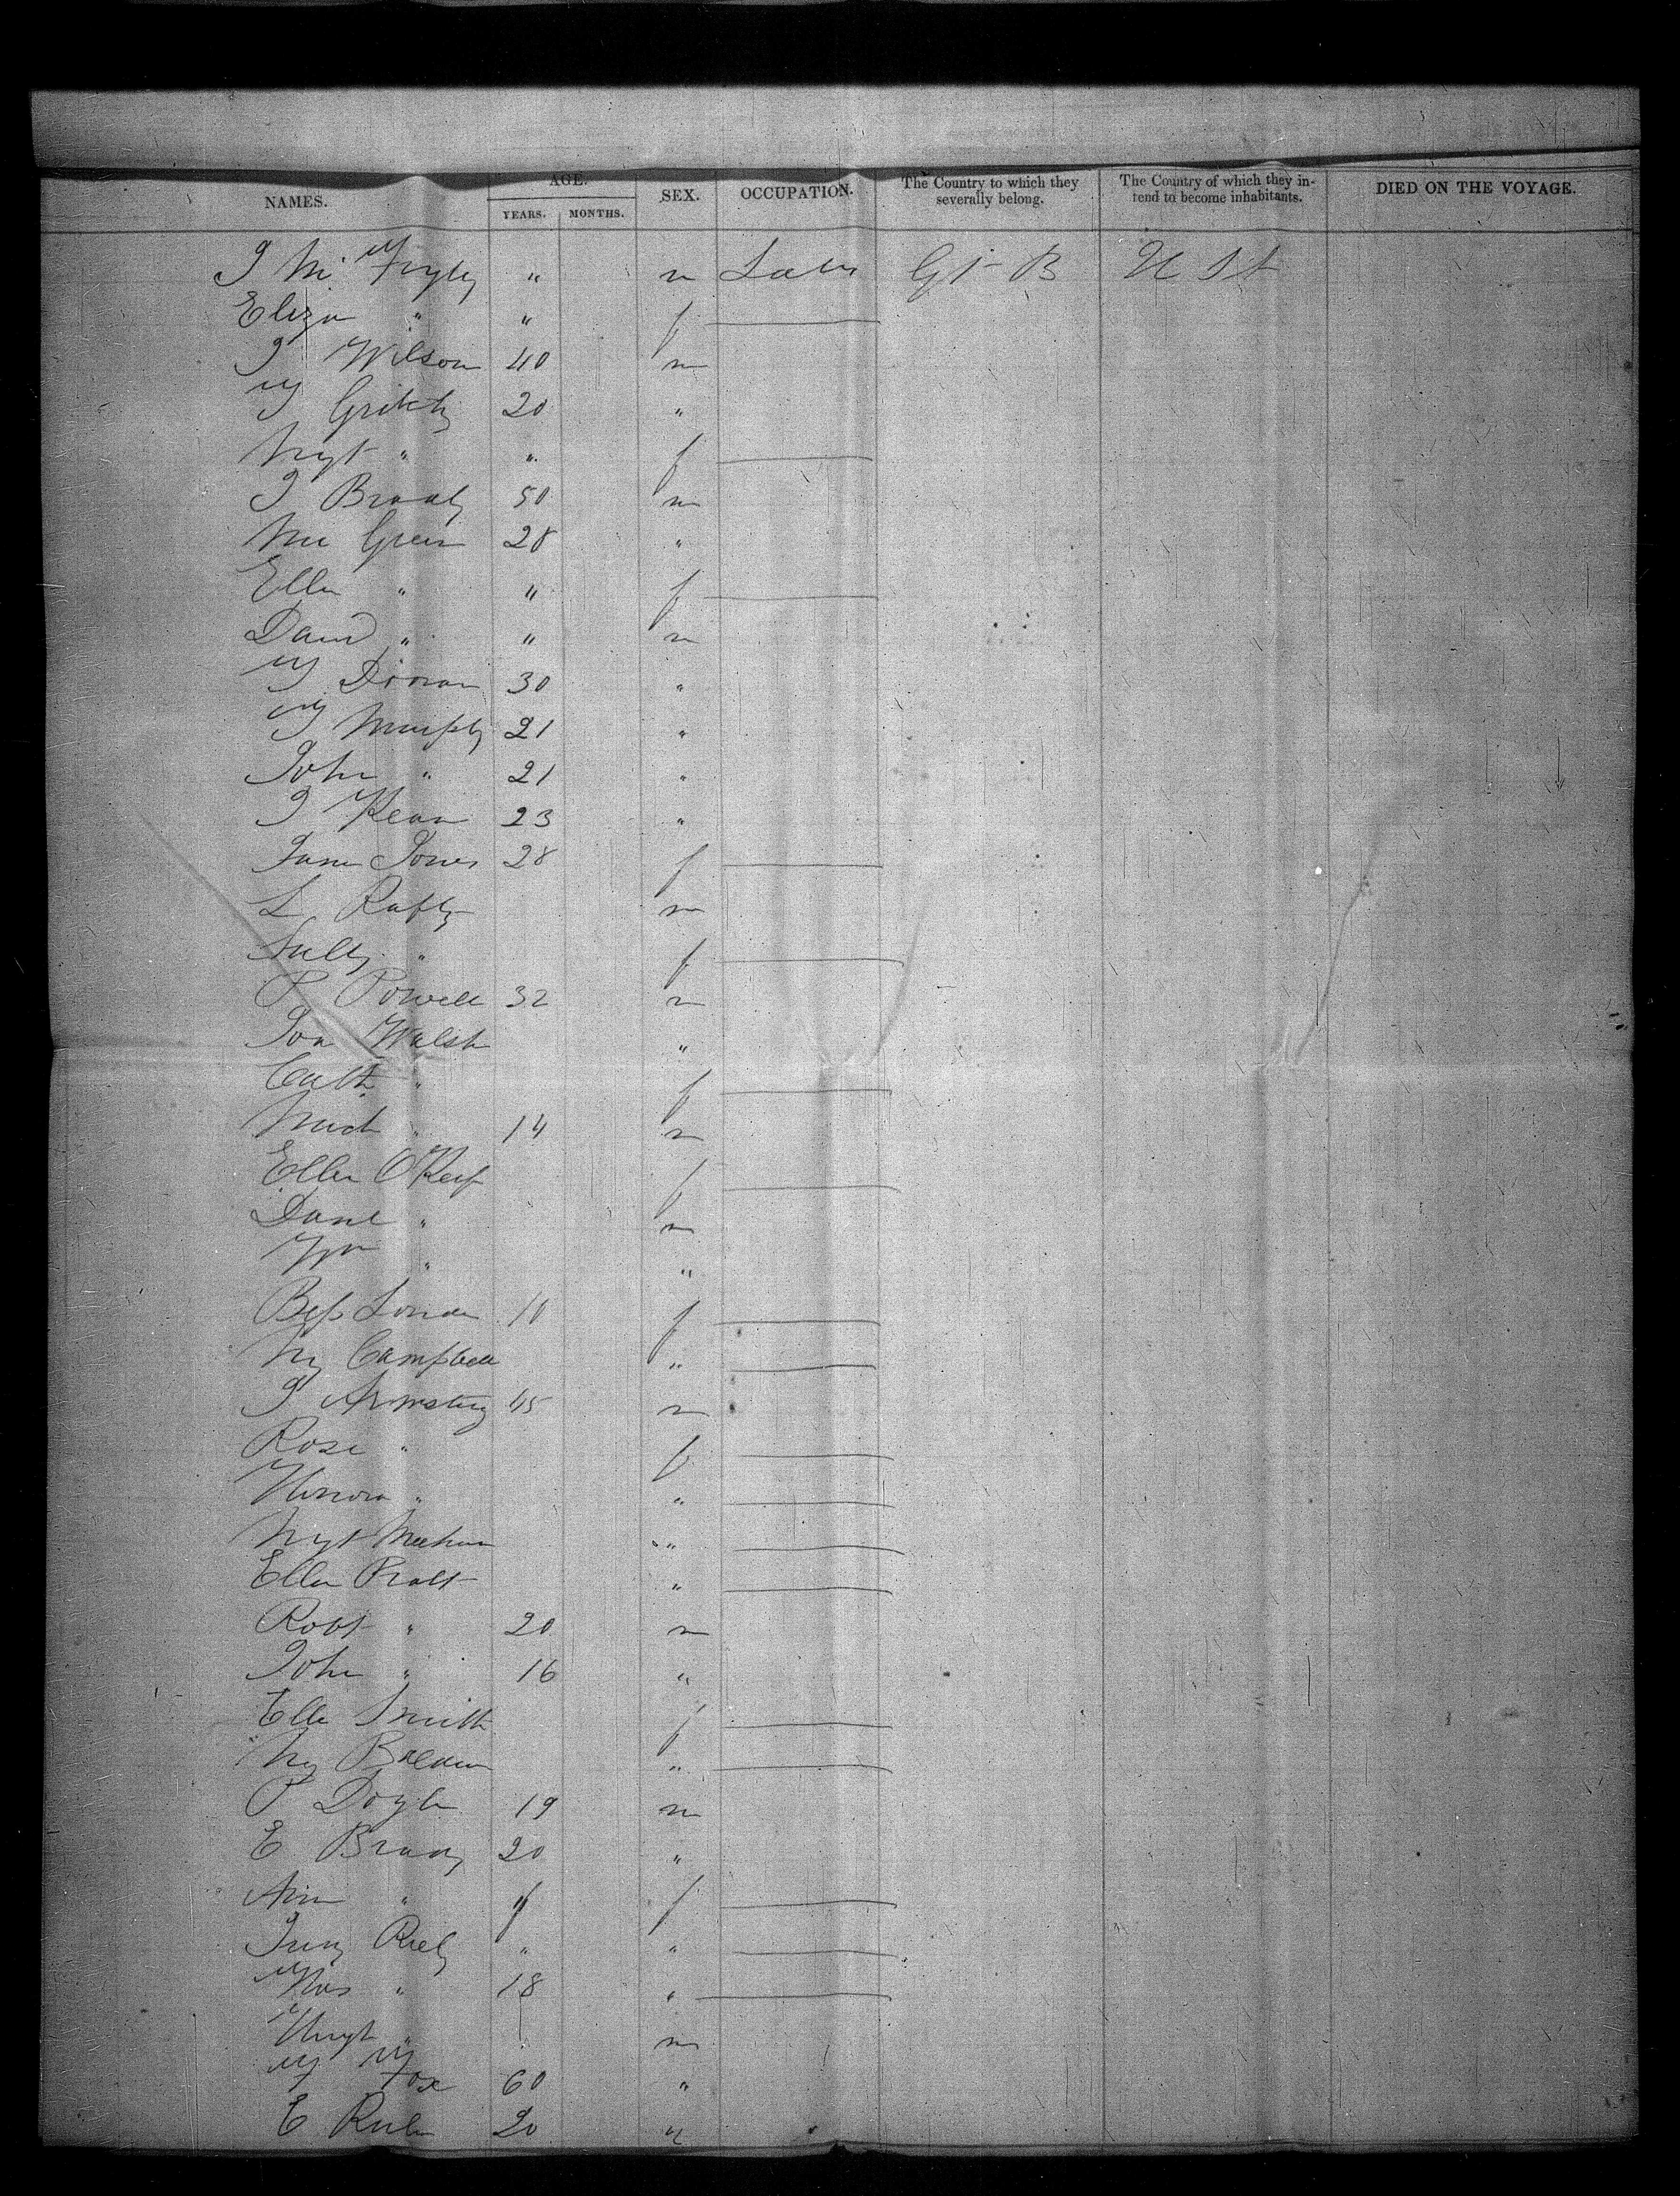 NAMES. AGE. YEARS. MONTHS. SEX. OCCUPATION. The Country to which they severally belong. The Country of which they intend to become inhabitants. DIED ON THE VOYAGE.
J " m Gt B U St
Eliza " " f
J Wilson 40 m
20 "
Mgt " " f
J Brady 50 m
Green 28 "
Ellen " " f
David " " m
T Doran 30 "
T Murphy 21 "
John " 21 "
J Kean 23 "
Jane Jones 28 f
L Rafty m
" f
P Powell 32 m
Walsh "
Cath " f
Mich " 14 m
Ellen O'Keef f
Danl " m
Wm " "
Bess 10 f
My Campbell "
J Armstrg 45 m
Rose " f
Honora " "
Mgt Meehan "
Ellen Pratt "
Robt " 20 m
John " 16 "
Elln Smith f
My "
P Doyle 19 m
E Brady 20 "
Ann " " f
Riely " "
" 18 "
Hugh " m
Fox 60 "
E 20 "